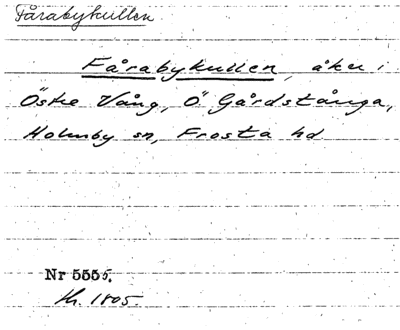 Fårabykullen
Fårabykullen, åker i
Östre Vång, Ö Gårdstånga,
Holmby sn, Frosta hd
Nr 5555.
Kh. 1805.